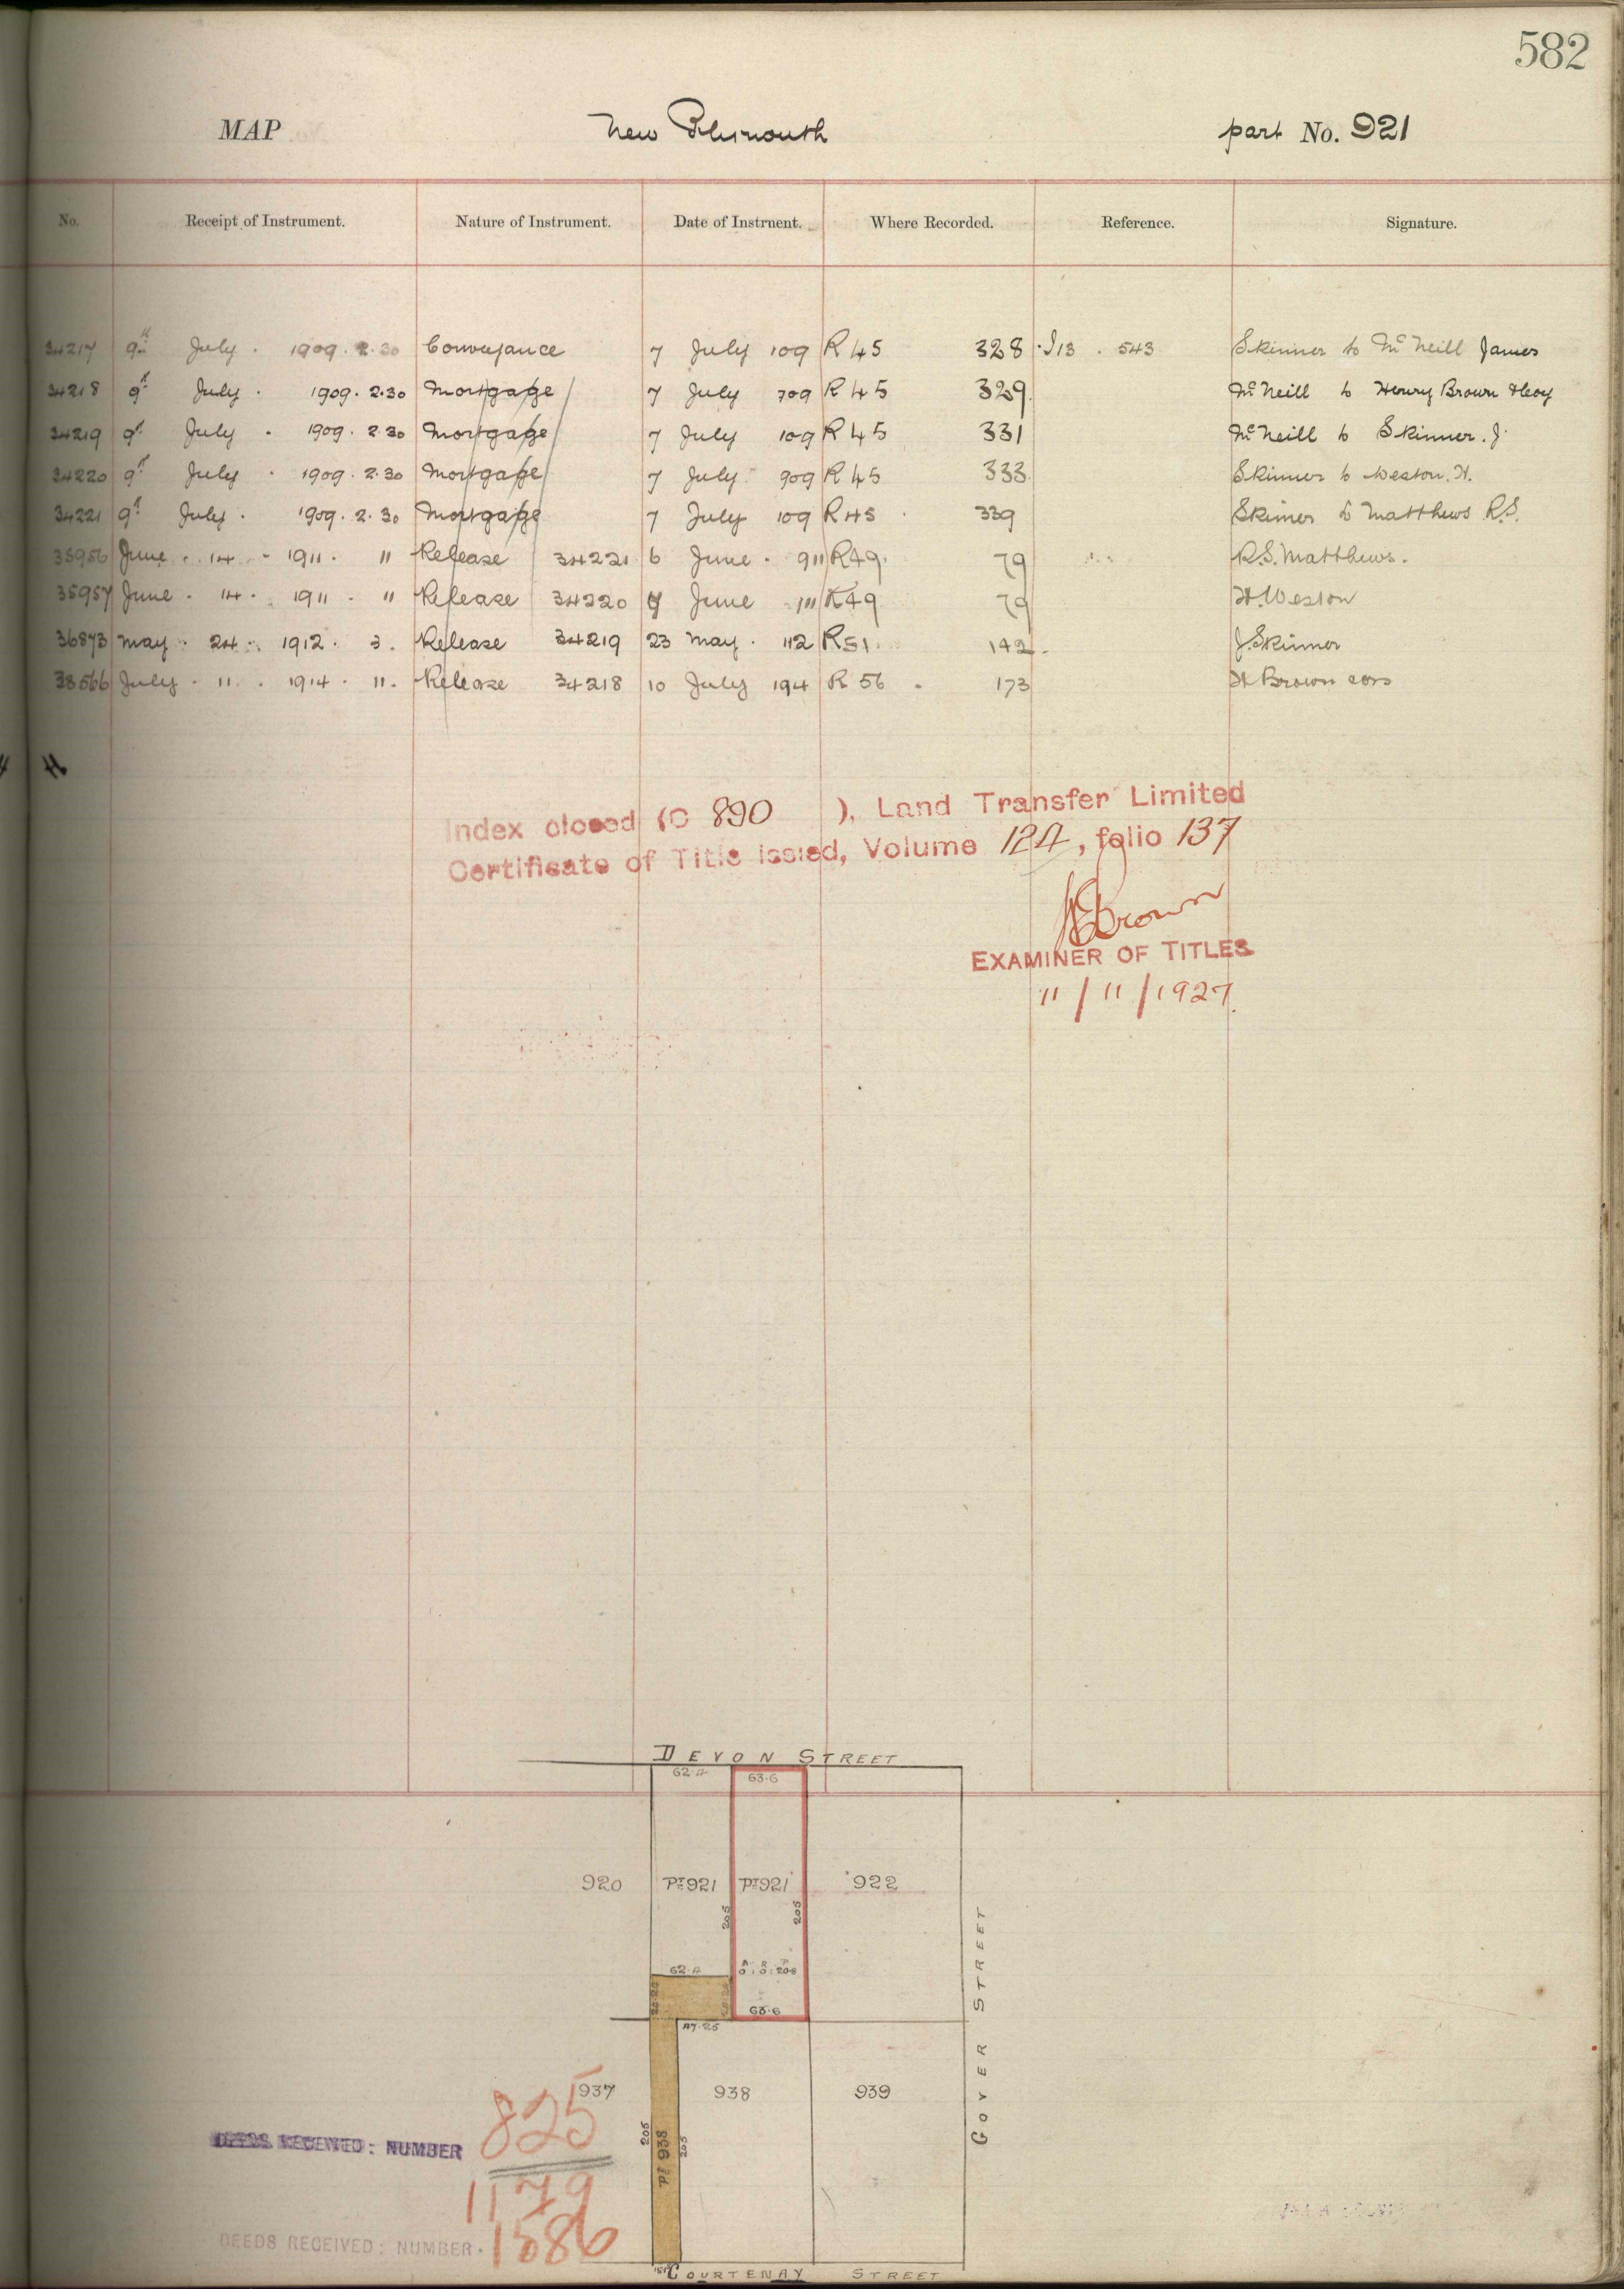 582
MAP New Plymouth part No. 921
No. Receipt of Instrument. Nature of Instrument. Date of Instrnent. Where Recorded. Reference. Signature.
34217 9th July . 1909. 2.30 Conveyance 7 July 109 R 45 328 I13 . 543 Skinner to McNeill James
34218 9th July . 1909. 2.30 Mortgage 7 July 909 R 45 329 McNeill to Henry Brown & Coy
34219 9th July . 1909. 2.30 Mortgage 7 July 109 R 45 331 McNeill to Skinner. J.
34220 9th July . 1909. 2.30 Mortgage 7 July 909 R 45 333 Skinner to Weston. H.
34221 9th July . 1909. 2.30 Mortgage 7 July 109 R 45 339 Skinner to Matthews R.S.
35956 June . 14 . 1911 . 11 Release 34221 6 June . 911 R49. 79 R.S. Matthews.
35957 June . 14 . 1911 . 11 Release 34220 June 111 R49 79 H. Weston
36873 May . 24 . 1912 . 3. Release 34219 23 May . 112 R51. 142. J. Skinner
38566 July . 11 . 1914 . 11. Release 34218 10 July 194 R 56 173 H Brown
Index closed (C 890 ), Land Transfer Limited
Certificate of Title issued, Volume 124, folio 137
Brown
EXAMINER OF TITLES
11/11/1927.
DEVON STREET
63.6
920 Pt 921 Pt 921 922
205 205
63.6
GOVER STREET
937 938 939
825
DEEDS RECEIVED: NUMBER
205 Pt 938 205
1179
DEEDS RECEIVED: NUMBER. 1586
COURTENAY STREET